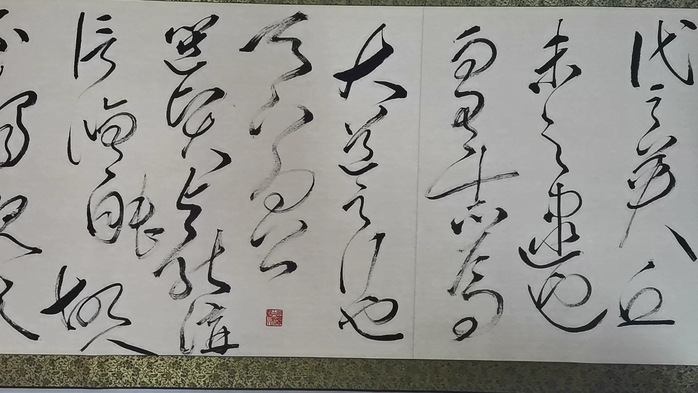 代之英丘
未之逮也
而有志焉
大道之行也
天下為公
選賢與能講
信脩睦故人
不獨親其